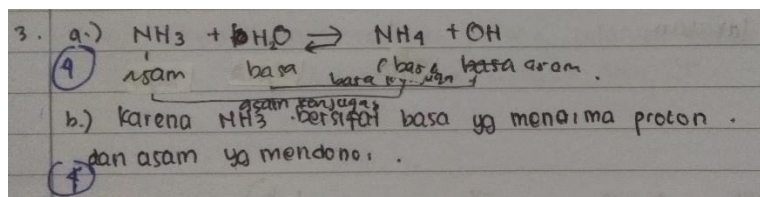 3. a.) NH3 + H2O ⇌ NH4 + OH
4 asam basa basa asam.
basa konjugasi
asam konjugasi
b.) Karena NH3 bersifat basa yg menerima proton.
4 dan asam yg mendonor.